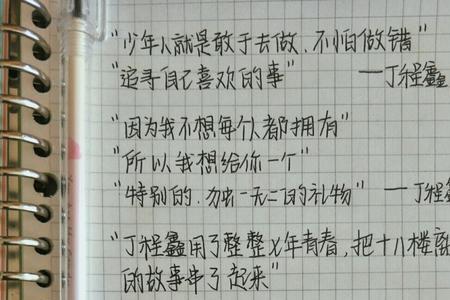 "少年人就是敢于去做、不怕做错"
"追寻自己喜欢的事" —丁程鑫
"因为我不想每个人都拥有"
"所以我想给你一个"
"特别的、独一无二的礼物" —丁程鑫
"丁程鑫用了整整七年青春,把十八楼
的故事串了起来"